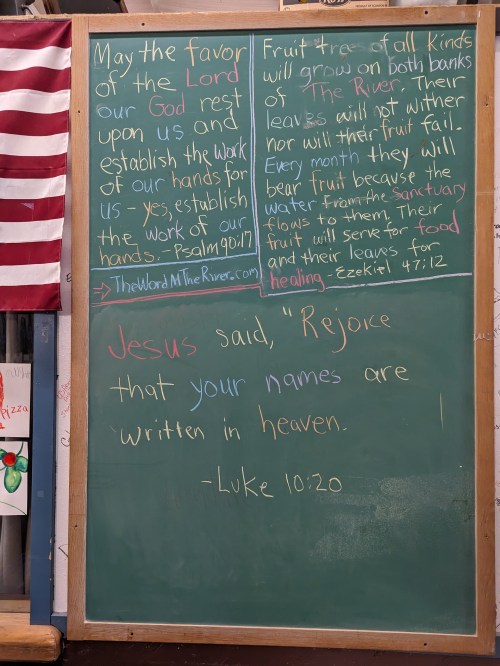 May the favor
of the Lord
our God rest
upon us and
establish the work
of our hands for
us - yes, establish
the work of our
hands. -Psalm 90:17
→ TheWordMTheRiver.com
Fruit tree of all kinds
will grow on both banks
of The River. Their
leaves will not wither
nor will their fruit fail.
Every month they will
bear fruit because the
water from the Sanctuary
flows to them. Their
fruit will serve for food
and their leaves for
healing -Ezekiel 47:12
Jesus said, "Rejoice
that your names are
written in heaven.
-Luke 10:20
Pizza